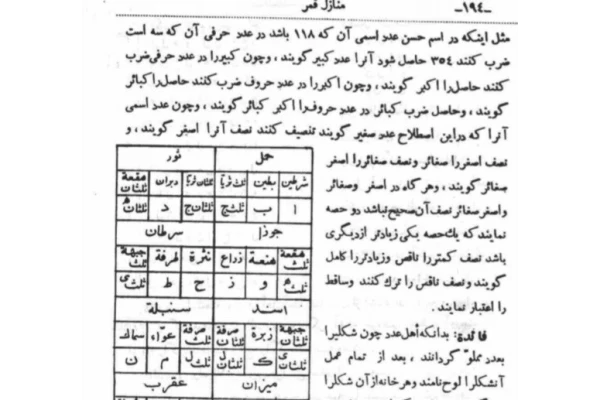 -۱۹٤-
منازل قمر
مثل اینکه در اسم حسن عدد اسمی آن که ۱۱۸ باشد در عدد حرفی آن که سه است
ضرب کنند ۳٥٤ حاصل شود آنرا عدد کبیر گویند ، وچون کبیررا در عدد حرفی ضرب
کنند حاصل را اکبر گویند ، وچون اکبررا در عدد حروف ضرب کنند حاصل را کبائر
گویند ، وحاصل ضرب کبائر در عدد حروف را اکبر کبائر گویند ، وچون عدد اسمی
آنرا که دراین اصطلاح عدد صغیر گویند تنصیف کنند نصف آنرا اصغر گویند ، و
نصف اصغررا صغائر ونصف صغائررا اصغر
صغائر گویند ، وهرگاه در اصغر وصغائر
واصغر صغائر نصف آن صحیح نباشد دو حصه
نمایند که یك حصه یکی زیادتر ازدیگری
باشد نصف کمتررا ناقص وزیادتررا کامل
گویند ونصف ناقص را ترك کنند وساقط
را اعتبار نمایند.
فائدة: بدانکه أهل عدد چون شکلیرا
بعدد مملو گردانند ، بعد از تمام عمل
آنشکلرا لوح نامند وهرخانه از آن شکلرا
حمل ثور
شرطین بطین ثلث ثریا ثلثان ثریا دبران هقعة ثلثان
ا ب ثلث ج ثلثان ج د ثلثان ه
جوذا سرطان
هقعة ثلث هنعة ذراع نثرة طرفة جبهة ثلث
ثلث ه و ز ح ط ثلث ی
اسد سنبلة
جبهة ثلثان زبرة صرفة ثلثان صرفة ثلث عوّاء سماك
ثلثان ی ك ثلثان ل ثلث ل م ن
میزان عقرب